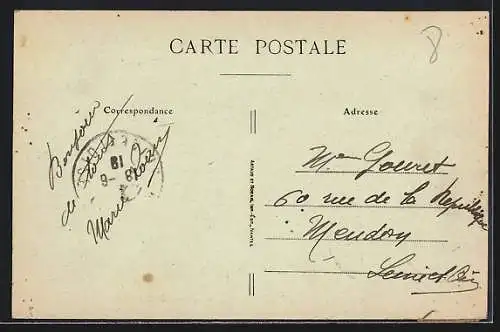 8
CARTE POSTALE
Correspondance
Adresse
Bonjour
de
Marie
18
8-8
Mme Gouret
60 rue de la République
Meudon
Seine et Oise